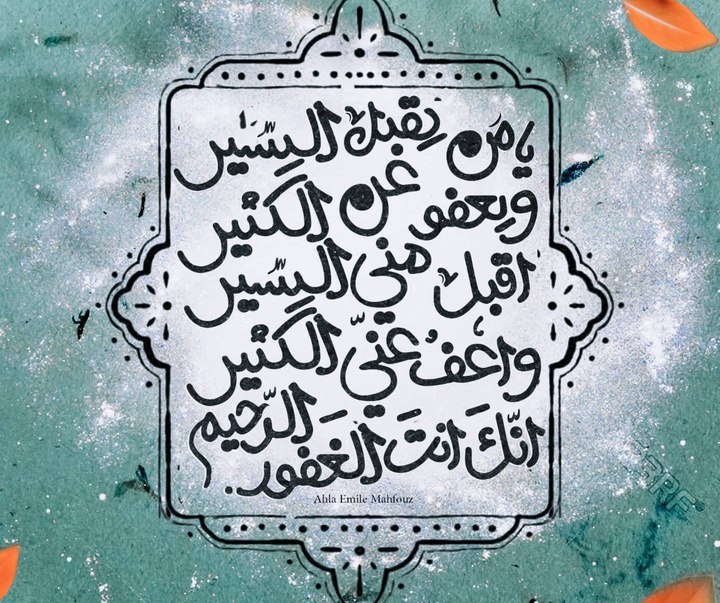 يا من يقبل اليسير
ويعفو عن الكثير
اقبل مني اليسير
واعفُ عنّي الكثير
انّكَ انتَ الغَفور الرّحيم
Ahla Emile Mahfouz